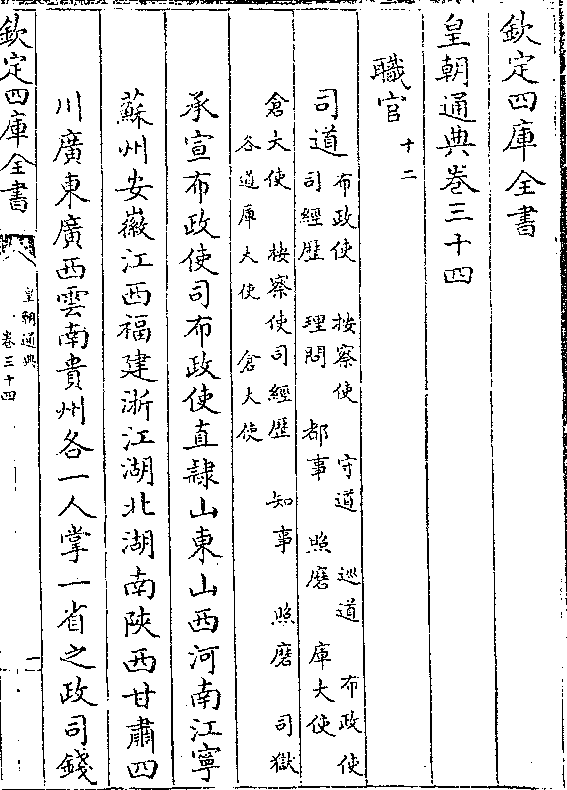 欽定四庫全書
皇朝通典卷三十四
職官十二
司道布政使 按察使 守道 巡道 布政使
司經歷 理問 都事 照磨 庫大使
倉大使 按察使司經歷 知事 照磨 司獄
各道庫大使 倉大使
承宣布政使司布政使直隸山東山西河南江寧
蘇州安徽江西福建浙江湖北湖南陝西甘肅四
川廣東廣西雲南貴州各一人掌一省之政司錢
欽定四庫全書
皇朝通典
卷三十四
一